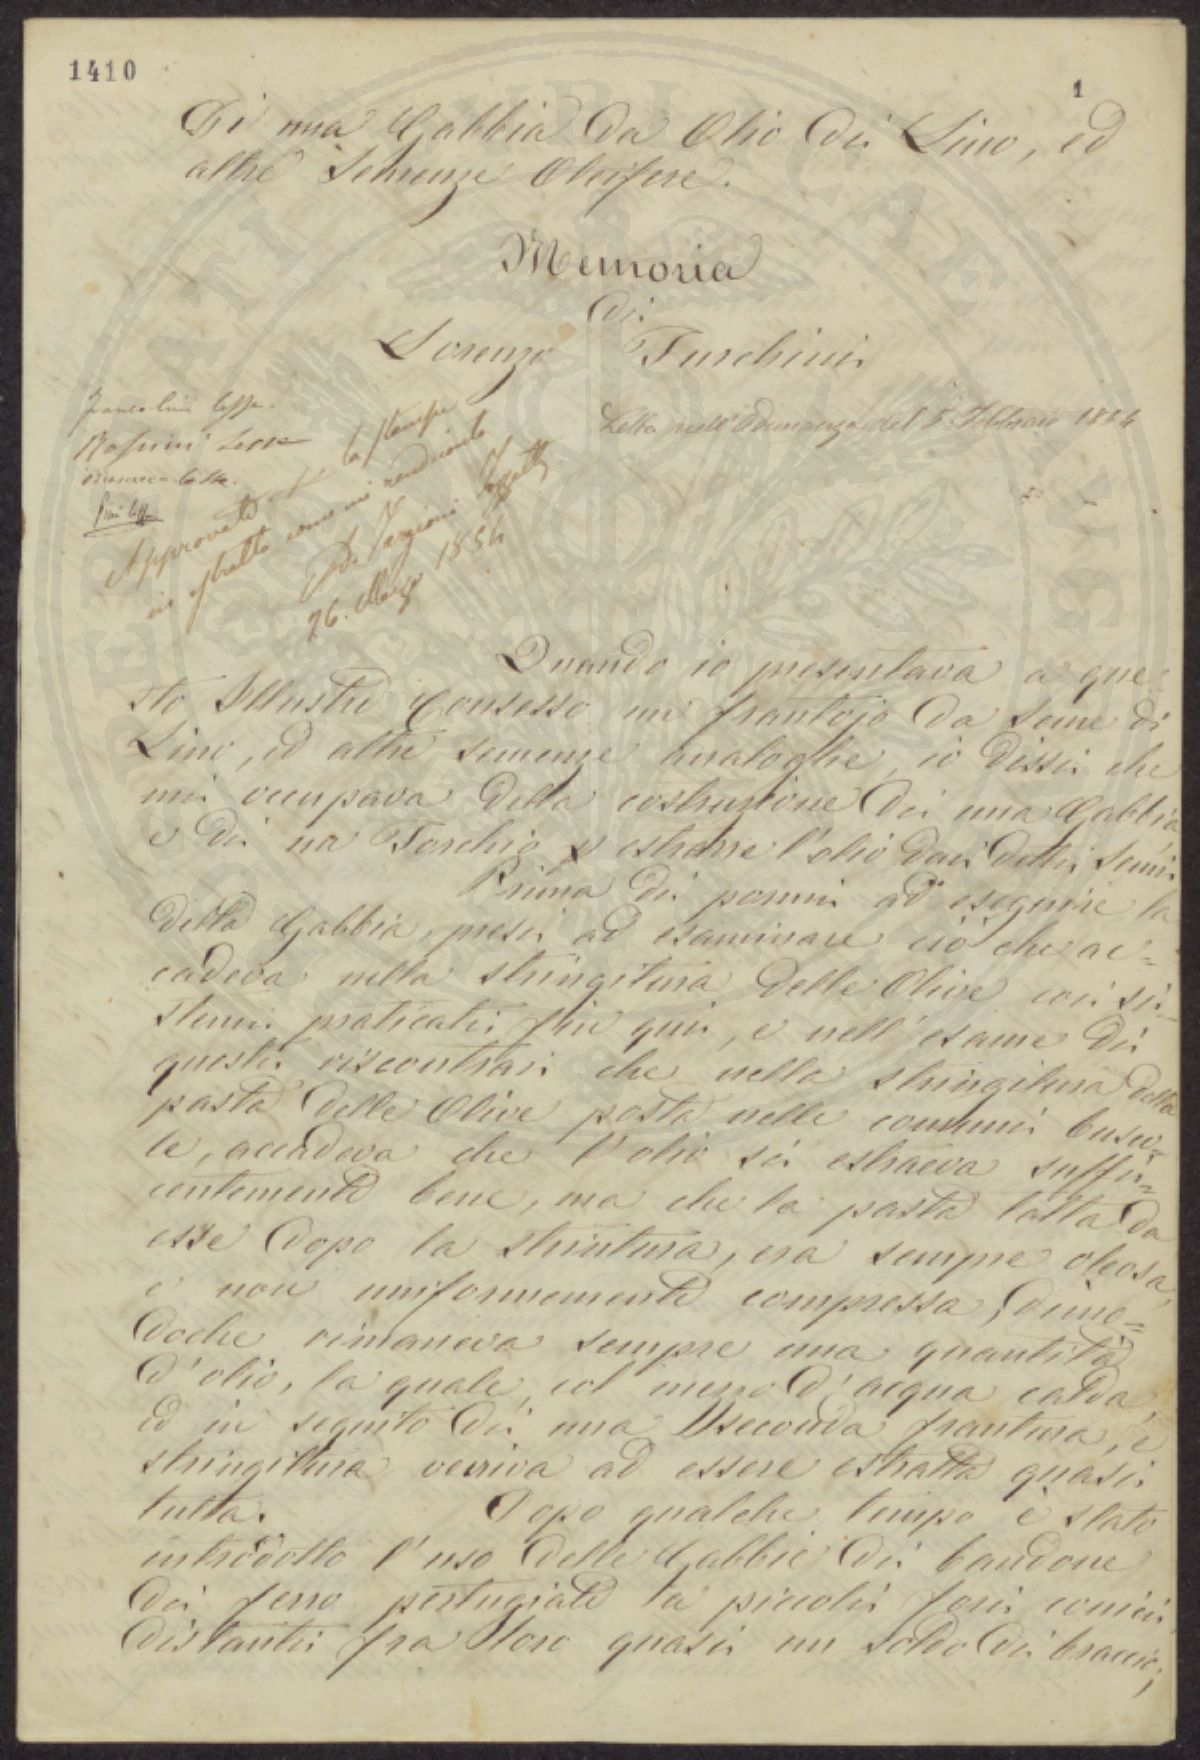 1410
1
Di una Gabbia da Olio di Lino, ed
altre Semenze Oleifere.
Memoria
di
Lorenzo Turchini
Letta nell'Adunanza del 5. Febbraio 1854
lesse.
Rafanini Lesse
lesse.
Approvato per la stampa
in estratto come in rendiconto
Ad. Targioni Tozzetti
26. Marzo 1854
Quando io presentava a que-
sto Illustre Consesso un frantojo da seme di
Lino, ed altre semenze analoghe, io dissi che
mi occupava della costruzione di una Gabbia,
e di un Torchio p estrarre l'olio dai detti semi
Prima di pormi ad eseguire la
detta Gabbia, presi ad esaminare ciò che ac=
cadeva nella stringitura delle Olive coi si=
stemi praticati fin qui, e nell'esame di
questi riscontrai che nella stringitura della
pasta delle Olive posta nelle comuni busco=
le, accadeva che l'olio si estraeva suffi=
centemente bene, ma che la pasta tolta da
esse dopo la strintura, era sempre oleosa,
e non uniformemente compressa, dimo=
doche rimaneva sempre una quantità
d'olio, la quale, col mezzo d'acqua calda,
ed in seguito di una seconda frantura, e
stringitura veniva ad essere estratta quasi
tutta. Dopo qualche tempo è stato
introdotto l'uso delle Gabbie di bandone
di ferro pertugiate a piccoli fori conici,
distanti fra loro quasi un soldo di braccio;